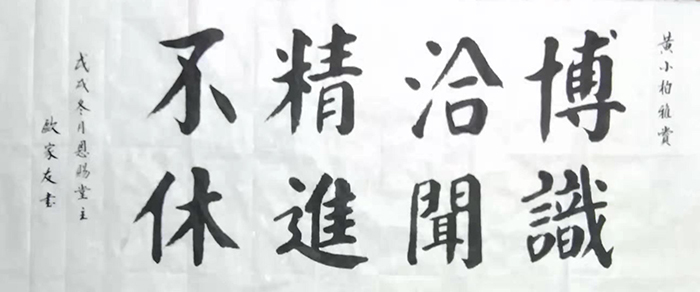 黄小柏雅赏
博識
洽聞
精進
不休
戊戌冬月恩賜堂主
歐家友書